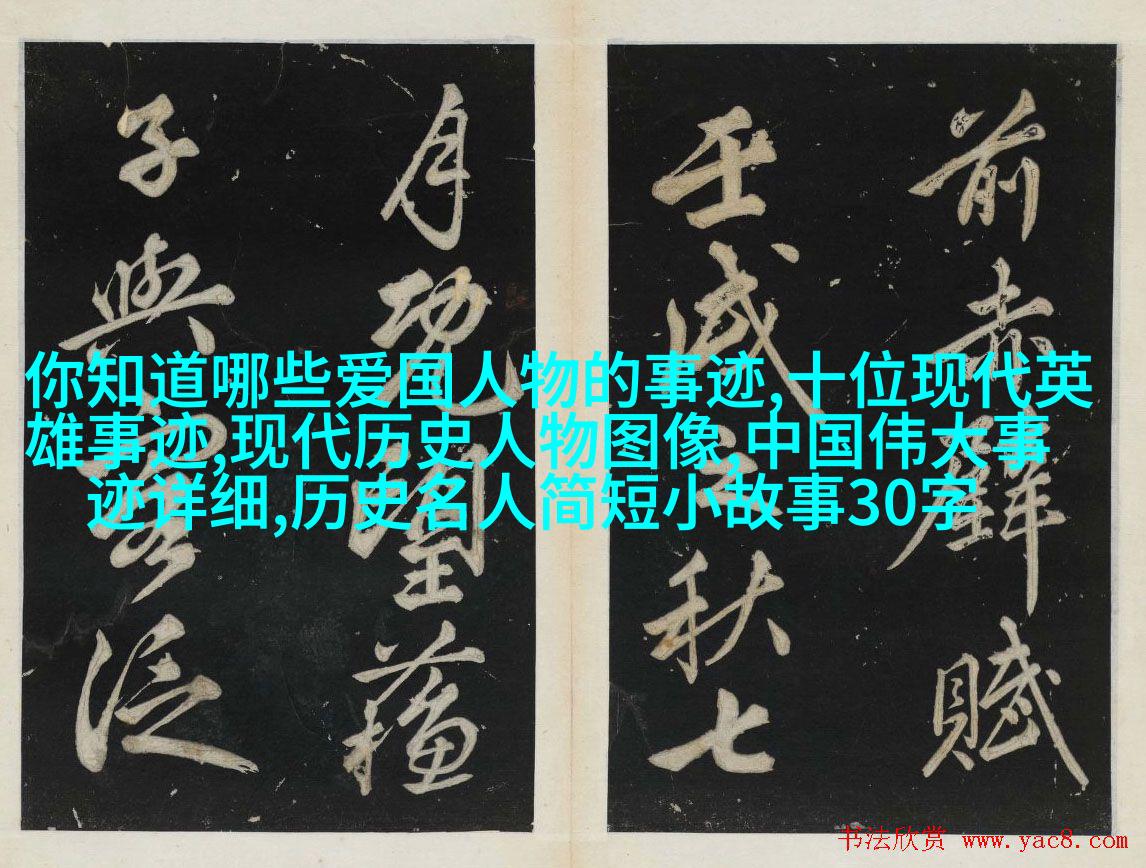 前赤壁賦
壬戌之秋七
月既望蘓
子與客泛
你知道哪些爱国人物的事迹,十位现代英
雄事迹,现代历史人物图像,中国伟大事
迹详细,历史名人简短小故事30字
书法欣赏 www.yac8.com